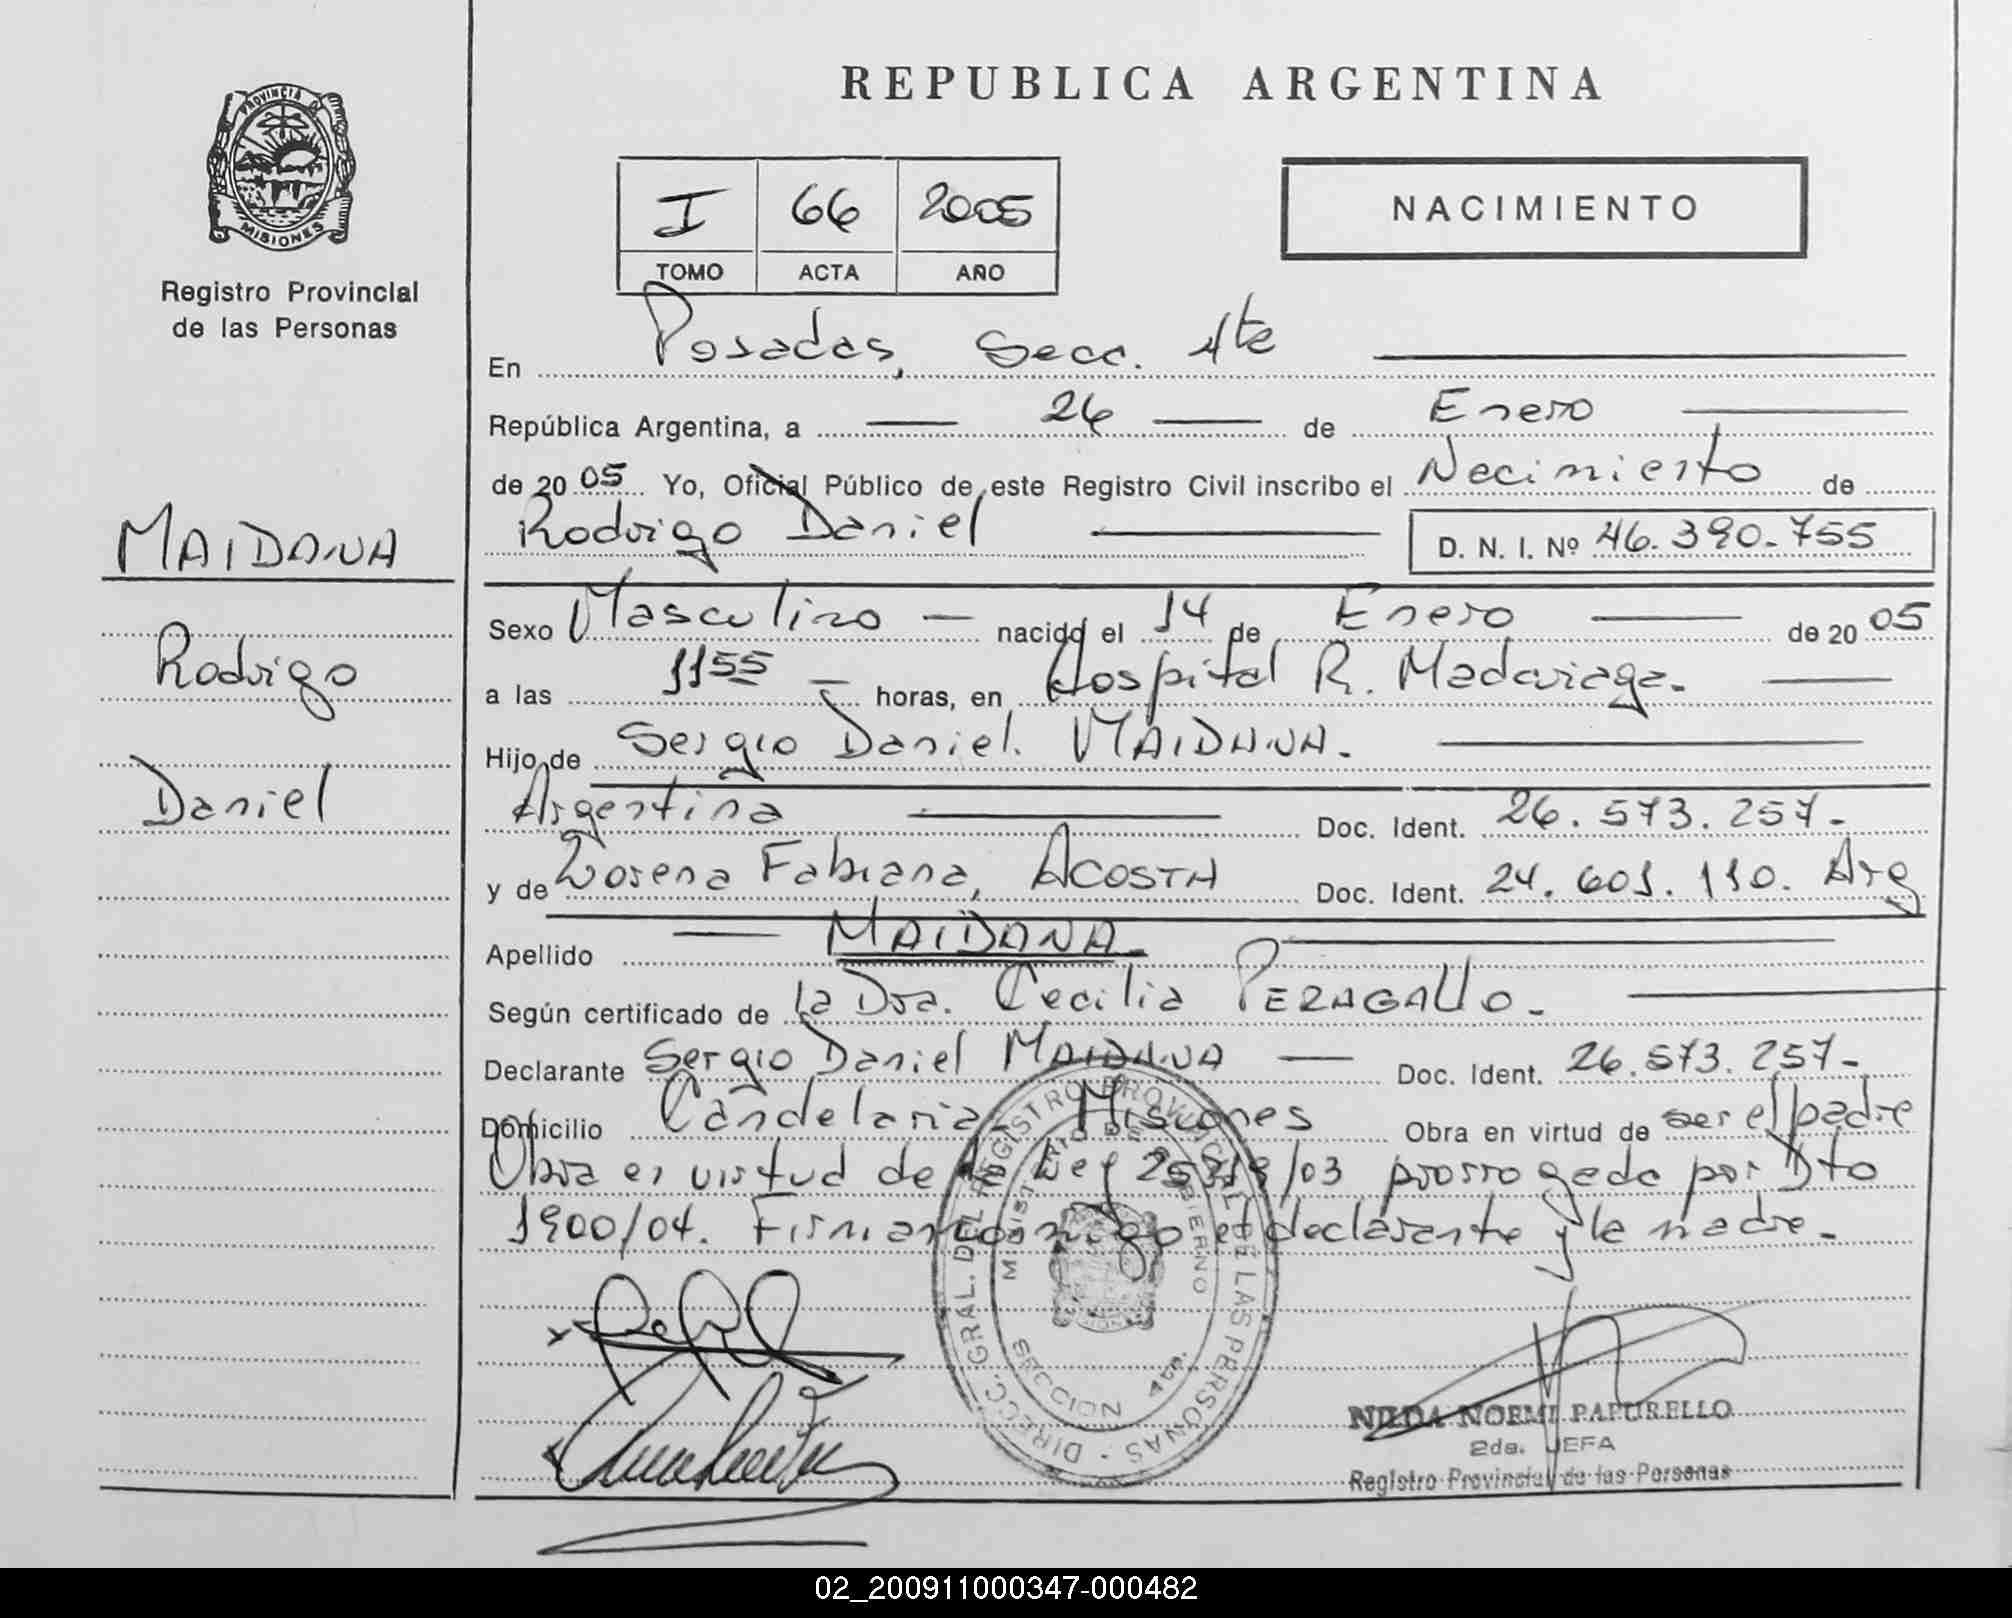 REPUBLICA ARGENTINA
PROVINCIA DE
MISIONES
Registro Provincial
de las Personas
I 66 2005
TOMO ACTA AÑO
NACIMIENTO
En Posadas, Secc. 4ta
República Argentina, a 26 de Enero
de 2005 Yo, Oficial Público de este Registro Civil inscribo el Nacimiento de
Rodrigo Daniel D. N. I. Nº 46.390.755
MAIDANA
Rodrigo
Daniel
Sexo Masculino nacido el 14 de Enero de 2005
a las 1155 horas, en Hospital R. Madariaga.
Hijo de Sergio Daniel. MAIDANA.
Argentina Doc. Ident. 26.573.257.
y de Lorena Fabiana, ACOSTA Doc. Ident. 24.601.110. Arg
Apellido MAIDANA
Según certificado de la Dra. Cecilia PERAGALLO.
Declarante Sergio Daniel MAIDANA Doc. Ident. 26.573.257
Domicilio Candelaria Misiones Obra en virtud de ser el padre
Obra en virtud de la Ley 25819/03 prorrogada por Dto
1900/04. Firman conmigo el declarante y la madre.
DIRECC. GRAL. DEL REGISTRO PROVINCIAL DE LAS PERSONAS
MINISTERIO DE GOBIERNO
SECCION 4ta.
NILDA NOEMI PAPURELLO
2da. JEFA
Registro Provincial de las Personas
02_200911000347-000482